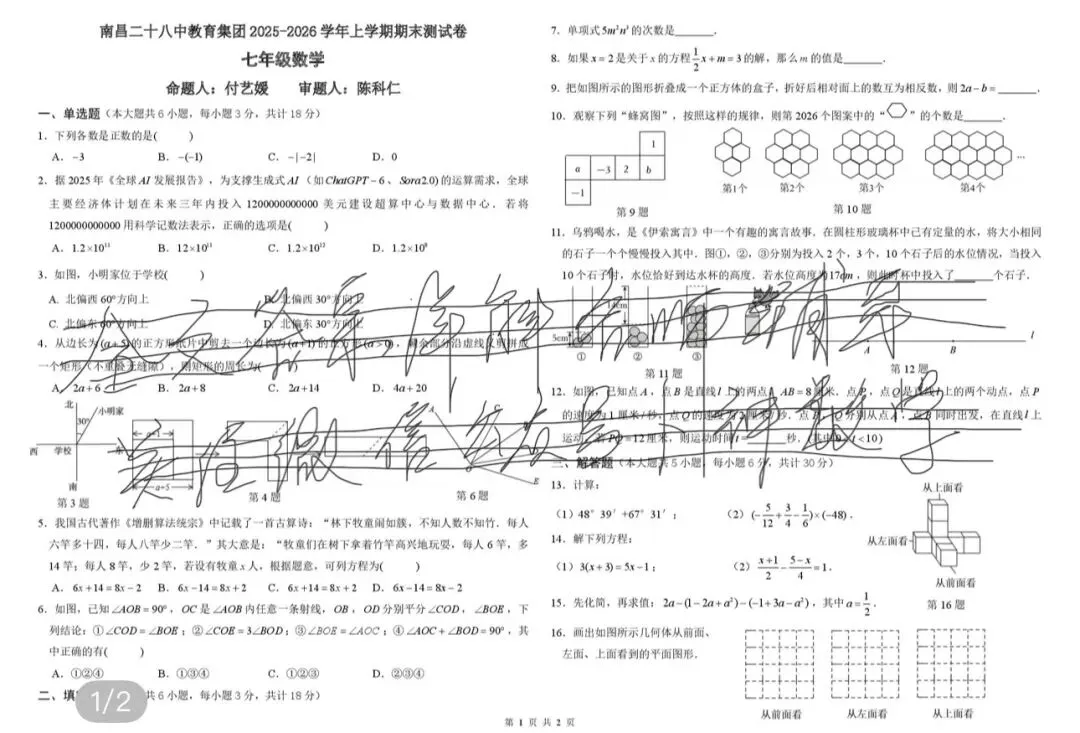 南昌二十八中教育集团2025-2026学年上学期期末测试卷
七年级数学
命题人：付艺媛 审题人：陈科仁
一、单选题（本大题共6小题，每小题3分，共计18分）
1．下列各数是正数的是( )
A．-3 B．-(-1) C．-|-2| D．0
2．据2025年《全球AI发展报告》，为支撑生成式AI（如ChatGPT-6、Sora2.0)的运算需求，全球
主要经济体计划在未来三年内投入1200000000000美元建设超算中心与数据中心．若将
1200000000000用科学记数法表示，正确的选项是( )
A．1.2×10¹¹ B．12×10¹¹ C．1.2×10¹² D．1.2×10⁹
3．如图，小明家位于学校( )
A．北偏西60°方向上 B．北偏西30°方向上
C．北偏东60°方向上 D．北偏东30°方向上
4．从边长为(a+5)的正方形纸片中剪去一个边长为(a+1)的正方形(a>0)，剩余部分沿虚线又剪拼成
一个矩形（不重叠无缝隙），则矩形的周长为( )
A．2a+6 B．2a+8 C．2a+14 D．4a+20
北
小明家
30°
西 学校 东
南
第3题
a+1
a+5
第4题
A
C
E
第6题
5．我国古代著作《增删算法统宗》中记载了一首古算诗：“林下牧童闹如簇，不知人数不知竹．每人
六竿多十四，每人八竿少二竿．”其大意是：“牧童们在树下拿着竹竿高兴地玩耍，每人6竿，多
14竿；每人8竿，少2竿，若设有牧童x人，根据题意，可列方程为( )
A．6x+14=8x-2 B．6x-14=8x+2 C．6x+14=8x+2 D．6x-14=8x-2
6．如图，已知∠AOB=90°，OC是∠AOB内任意一条射线，OB，OD分别平分∠COD，∠BOE，下
列结论：①∠COD=∠BOE；②∠COE=3∠BOD；③∠BOE=∠AOC；④∠AOC+∠BOD=90°，其
中正确的有( )
A．①②④ B．①③④ C．①②③ D．②③④
二、填 共6小题，每小题3分，共计18分）
1/2
7．单项式5m²n³的次数是______．
8．如果x=2是关于x的方程1/2x+m=3的解，那么m的值是______．
9．把如图所示的图形折叠成一个正方体的盒子，折好后相对面上的数互为相反数，则2a-b=______．
10．观察下列“蜂窝图”，按照这样的规律，则第2026个图案中的“ ”的个数是______．
1
a -3 2 b
-1
第9题
第1个 第2个 第3个 第4个 …
第10题
11．乌鸦喝水，是《伊索寓言》中一个有趣的寓言故事．在圆柱形玻璃杯中已有定量的水，将大小相同
的石子一个个慢慢投入其中．图①，②，③分别为投入2个，3个，10个石子后的水位情况，当投入
10个石子时，水位恰好到达水杯的高度．若水位高度为17cm，则此时杯中投入了______个石子．
14cm
5cm
① ② ③
第11题
A B l
第12题
12．如图，已知点A，点B是直线l上的两点，AB=8厘米．点P，点Q是直线l上的两个动点，点P
的速度为1厘米/秒，点Q的速度为2厘米/秒．点P、Q分别从点A，点B同时出发，在直线l上
运动．若PQ=12厘米，则运动时间t=______秒．（其中0<t<10）
三、解答题（本大题共5小题，每小题6分，共计30分）
13．计算：
（1）48°39′+67°31′； （2）(-5/12+3/4-1/6)×(-48)．
14．解下列方程：
（1）3(x+3)=5x-1； （2）(x+1)/2-(5-x)/4=1．
从上面看
从左面看
从前面看
第16题
15．先化简，再求值：2a-(1-2a+a²)-(-1+3a-a²)，其中a=1/2．
16．画出如图所示几何体从前面、
左面、上面看到的平面图形．
从前面看 从左面看 从上面看
第1页共2页